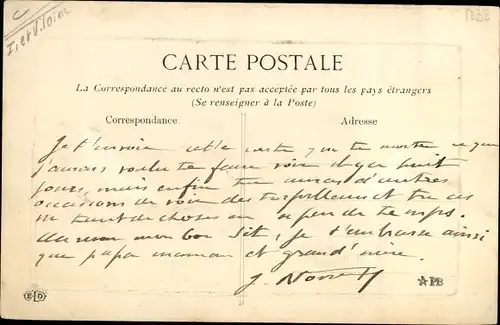 C
Ille et Vilaine
1232
CARTE POSTALE
La Correspondance au recto n'est pas acceptée par tous les pays étrangers
(Se renseigner à la Poste)
Correspondance
Adresse
Je t'envoie cette carte que te montre ce que
j'aurais voulu te faire voir il y a huit
jours, mais enfin tu auras d'autres
occasions de voir des torpilleurs et tu as
vu tant de choses en si peu de temps.
Au revoir mon bon Jit, je t'embrasse ainsi
que papa maman et grand'mère.
J.
ELD
APB